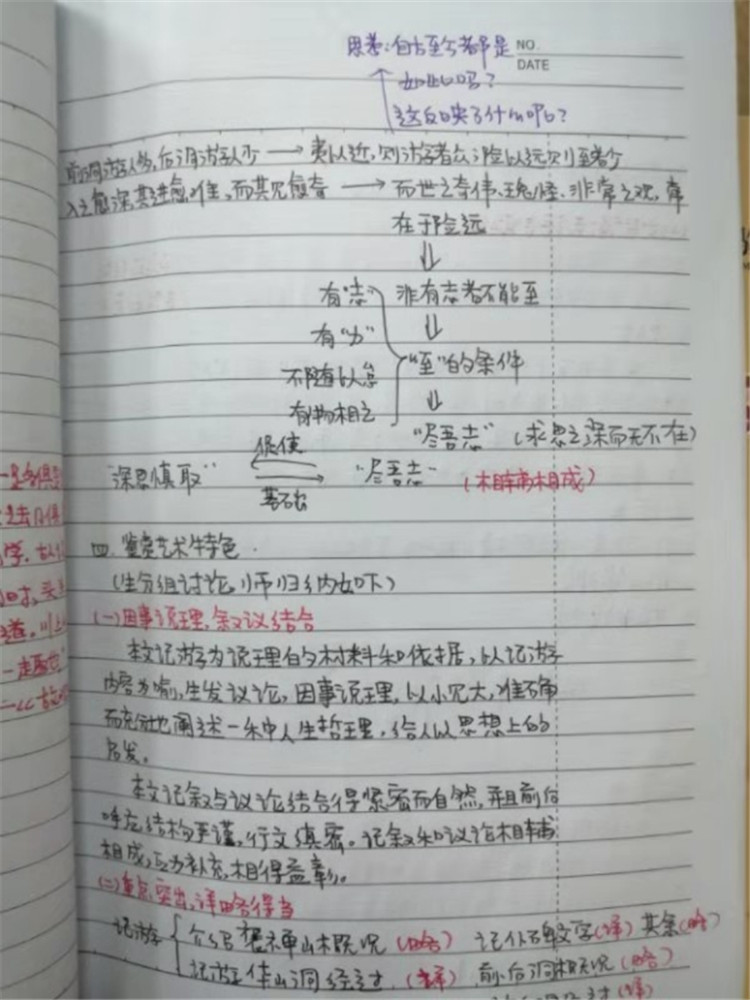 思考:自古至今都是
NO.
DATE
如此吗?
这反映了什么呢?
前洞游人多,后洞游人少 → 夷以近,则游者众,险以远,则至者少
入之愈深,其进愈难,而其见愈奇 → 而世之奇伟、瑰怪、非常之观,常
在于险远
⇓
有"志" 非有志者不能至
有"力" ⇓
不随以怠 "至"的条件
有物相之 ⇓
促使 "尽吾志" (求思之深而无不在)
"深思慎取" "尽吾志" (相辅相成)
基础
四.鉴赏艺术特色.
(生分组讨论,师归纳如下)
(一)因事说理,叙议结合
本文记游为说理的材料和依据,以记游
内容为喻,生发议论,因事说理,以小见大,准确
而充分地阐述一种人生哲理,给人以思想上的
启发。
本文记叙与议论结合得紧密而自然,并且前后
呼应,结构严谨,行文缜密。记叙和议论相辅
相成,互为补充,相得益彰。
(二)重点突出,详略得当
记游 介绍褒禅山概况(略) 记仆碑文字(详) 其余(略)
记游华山洞经过(详) 前后洞概况(略)
经过(详)